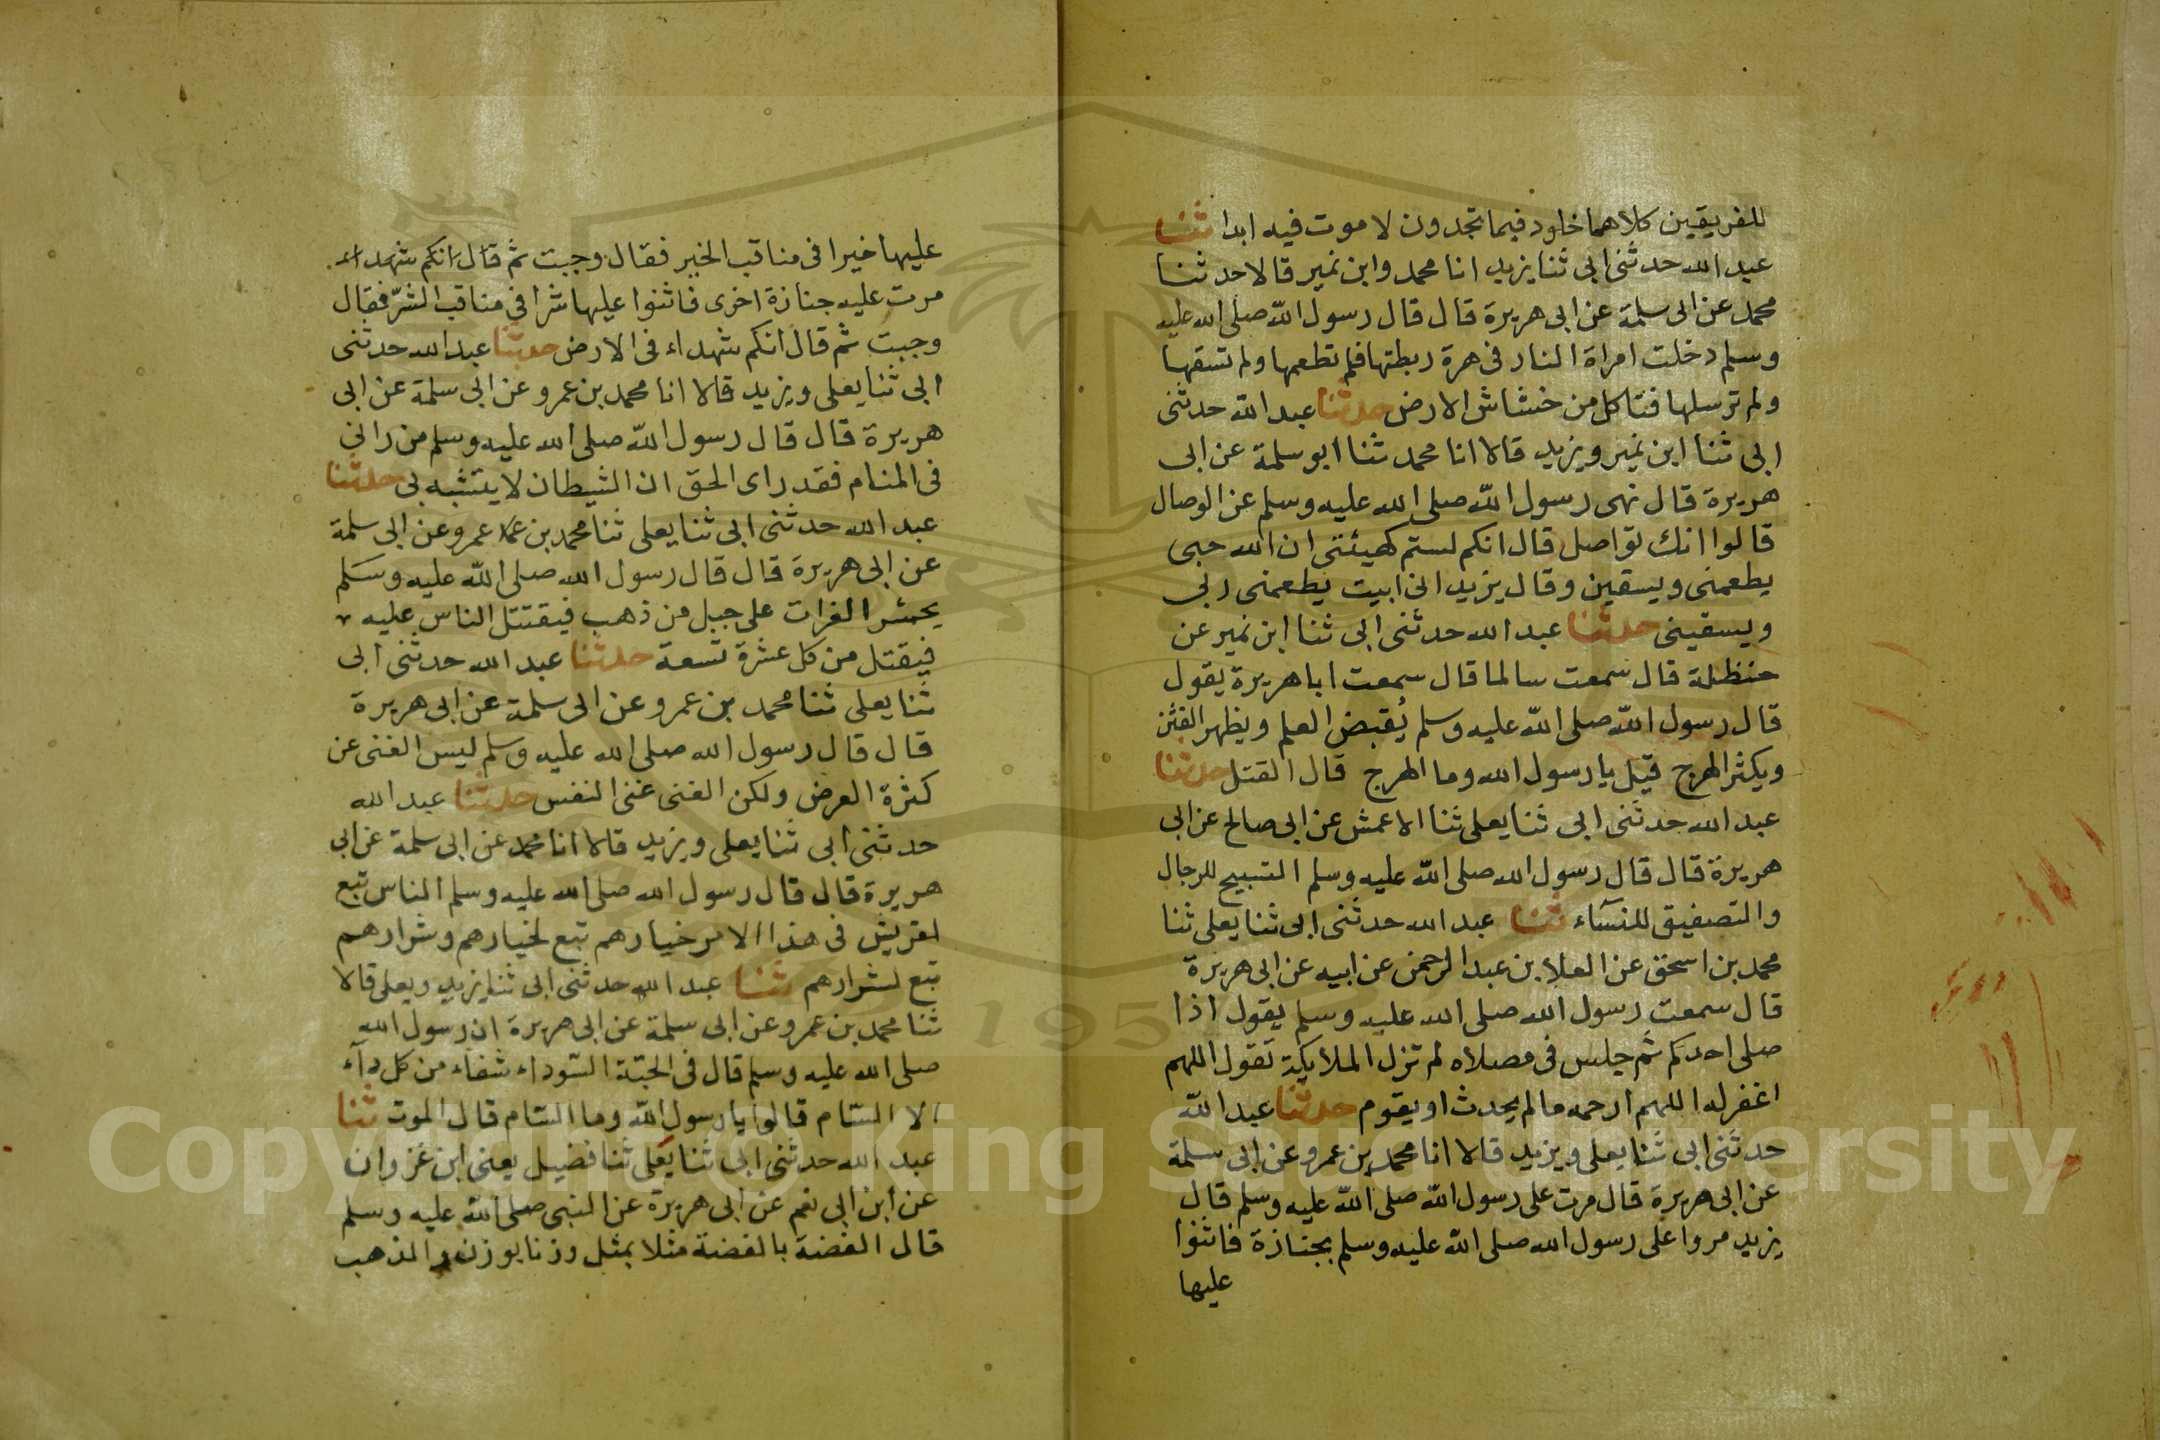 للفريقين كلاهما خلود فيما تجدون لا موت فيه ابدا ثنا
عبد الله حدثني ابي ثنا يزيد انا محمد وابن نمير قالا حدثنا
محمد عن ابي سلمة عن ابي هريرة قال قال رسول الله صلى الله عليه
وسلم دخلت امراة النار في هرة ربطتها فلم تطعمها ولم تسقها
ولم ترسلها فتاكل من خشاش الارض حدثنا عبد الله حدثني
ابي ثنا ابن نمير ويزيد قالا انا محمد ثنا ابو سلمة عن ابي
هريرة قال نهى رسول الله صلى الله عليه وسلم عن الوصال
قالوا انك تواصل قال انكم لستم كهيئتي ان الله حبي
يطعمني ويسقين وقال يزيد اني ابيت يطعمني ربي
ويسقيني حدثنا عبد الله حدثني ابي ثنا ابن نمير عن
حنظلة قال سمعت سالما قال سمعت ابا هريرة يقول
قال رسول الله صلى الله عليه وسلم يُقبض العلم ويظهر الفتن
ويكثر الهرج قيل يا رسول الله وما الهرج قال القتل حدثنا
عبد الله حدثني ابي ثنا يعلى ثنا الاعمش عن ابي صالح عن ابي
هريرة قال قال رسول الله صلى الله عليه وسلم التسبيح للرجال
والتصفيق للنسآء ثنا عبد الله حدثني ابي ثنا يعلى ثنا
محمد بن اسحق عن العلا بن عبد الرحمن عن ابيه عن ابي هريرة
قال سمعت رسول الله صلى الله عليه وسلم يقول اذا
صلى احدكم ثم جلس في مصلاه لم تزل الملايكة تقول اللهم
اغفر له اللهم ارحمه ما لم يحدث او يقوم حدثنا عبد الله
حدثني ابي ثنا يعلى ويزيد قالا انا محمد بن عمرو عن ابي سلمة
عن ابي هريرة قال مرت على رسول الله صلى الله عليه وسلم قال
يزيد مروا على رسول الله صلى الله عليه وسلم بجنازة فاثنوا
عليها
عليها خيرا في مناقب الخير فقال وجبت ثم قال انكم شهداء
مرت عليه جنازة اخرى فاثنوا عليها شرا في مناقب الشرّ فقال
وجبت ثم قال انكم شهداء في الارض حدثنا عبد الله حدثني
ابي ثنا يعلى ويزيد قالا انا محمد بن عمرو عن ابي سلمة عن ابي
هريرة قال قال رسول الله صلى الله عليه وسلم من راني
في المنام فقد راى الحق ان الشيطان لا يتشبه بي حدثنا
عبد الله حدثني ابي ثنا يعلى ثنا محمد بن عمرو عن ابي سلمة
عن ابي هريرة قال قال رسول الله صلى الله عليه وسلم
يحسر الفرات على جبل من ذهب فيقتتل الناس عليه
فيقتل من كل عشرة تسعة حدثنا عبد الله حدثني ابي
ثنا يعلى ثنا محمد بن عمرو عن ابي سلمة عن ابي هريرة
قال قال رسول الله صلى الله عليه وسلم ليس الغنى عن
كثرة العرض ولكن الغنى غنى النفس حدثنا عبد الله
حدثني ابي ثنا يعلى ويزيد قالا انا محمد عن ابي سلمة عن ابي
هريرة قال قال رسول الله صلى الله عليه وسلم الناس تبع
لقريش في هذا الامر خيارهم تبع لخيارهم وشرارهم
تبع لشرارهم ثنا عبد الله حدثني ابي ثنا يزيد ويعلى قالا
ثنا محمد بن عمرو عن ابي سلمة عن ابي هريرة ان رسول الله
صلى الله عليه وسلم قال في الحبّة السّوداء شفاء من كل دآء
الا السّام قالوا يا رسول الله وما السّام قال الموت ثنا
عبد الله حدثني ابي ثنا يعلى ثنا فضيل يعني ابن غزوان
عن ابن ابي نعم عن ابي هريرة عن النبي صلى الله عليه وسلم
قال الفضة بالفضة مثلا بمثل وزنا بوزن والذهب
195
Copyright © King Saud University